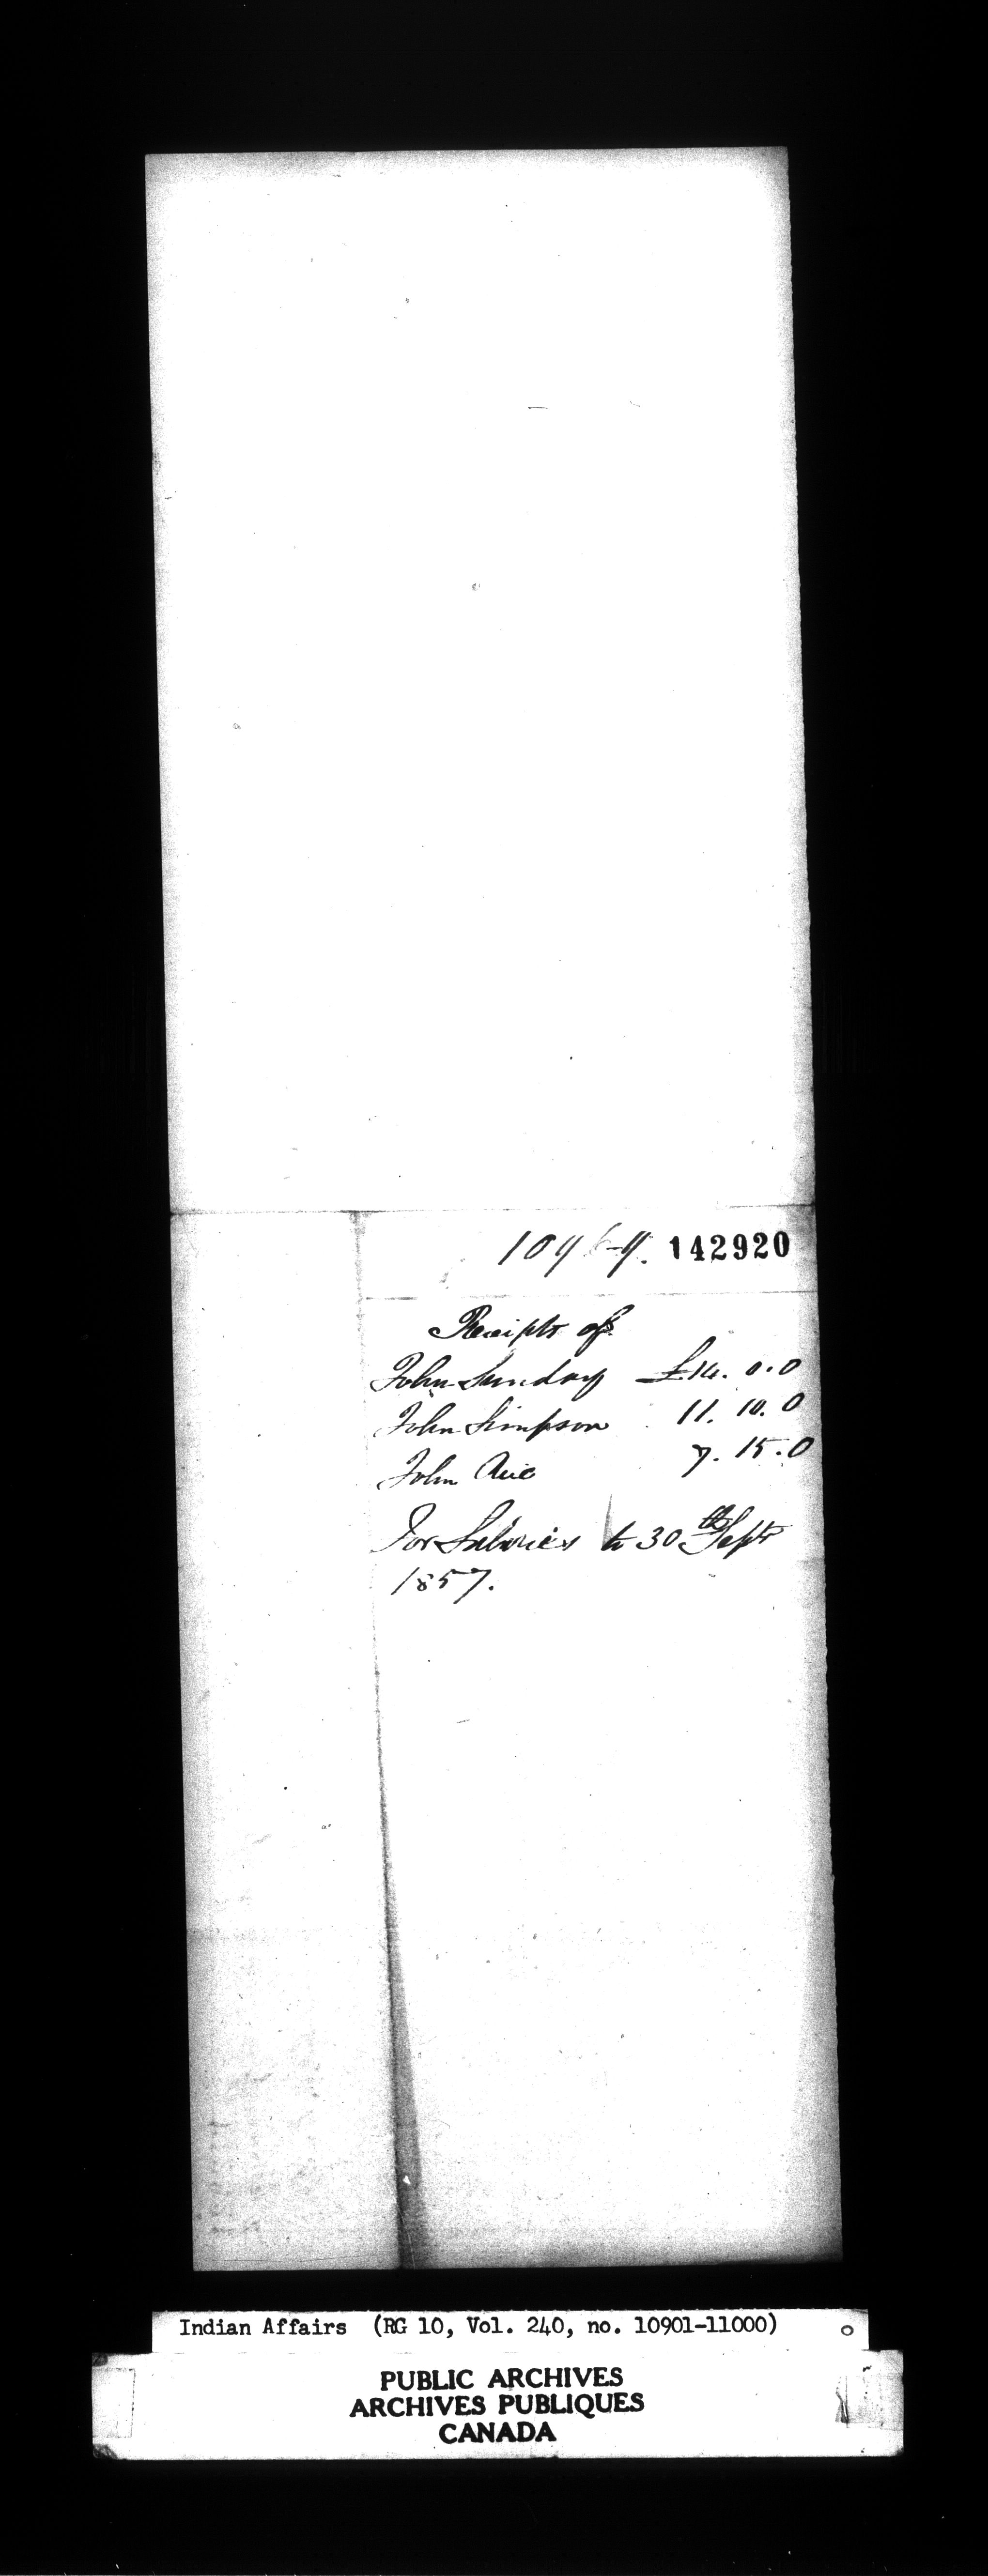 142920
Receipts of
John Sunday £14. 0. 0
John Simpson 11. 10. 0
John Rice 7. 15. 0
For Salaries to 30th Septr
1857.
Indian Affairs (RG 10, Vol. 240, no. 10901-11000)
PUBLIC ARCHIVES
ARCHIVES PUBLIQUES
CANADA